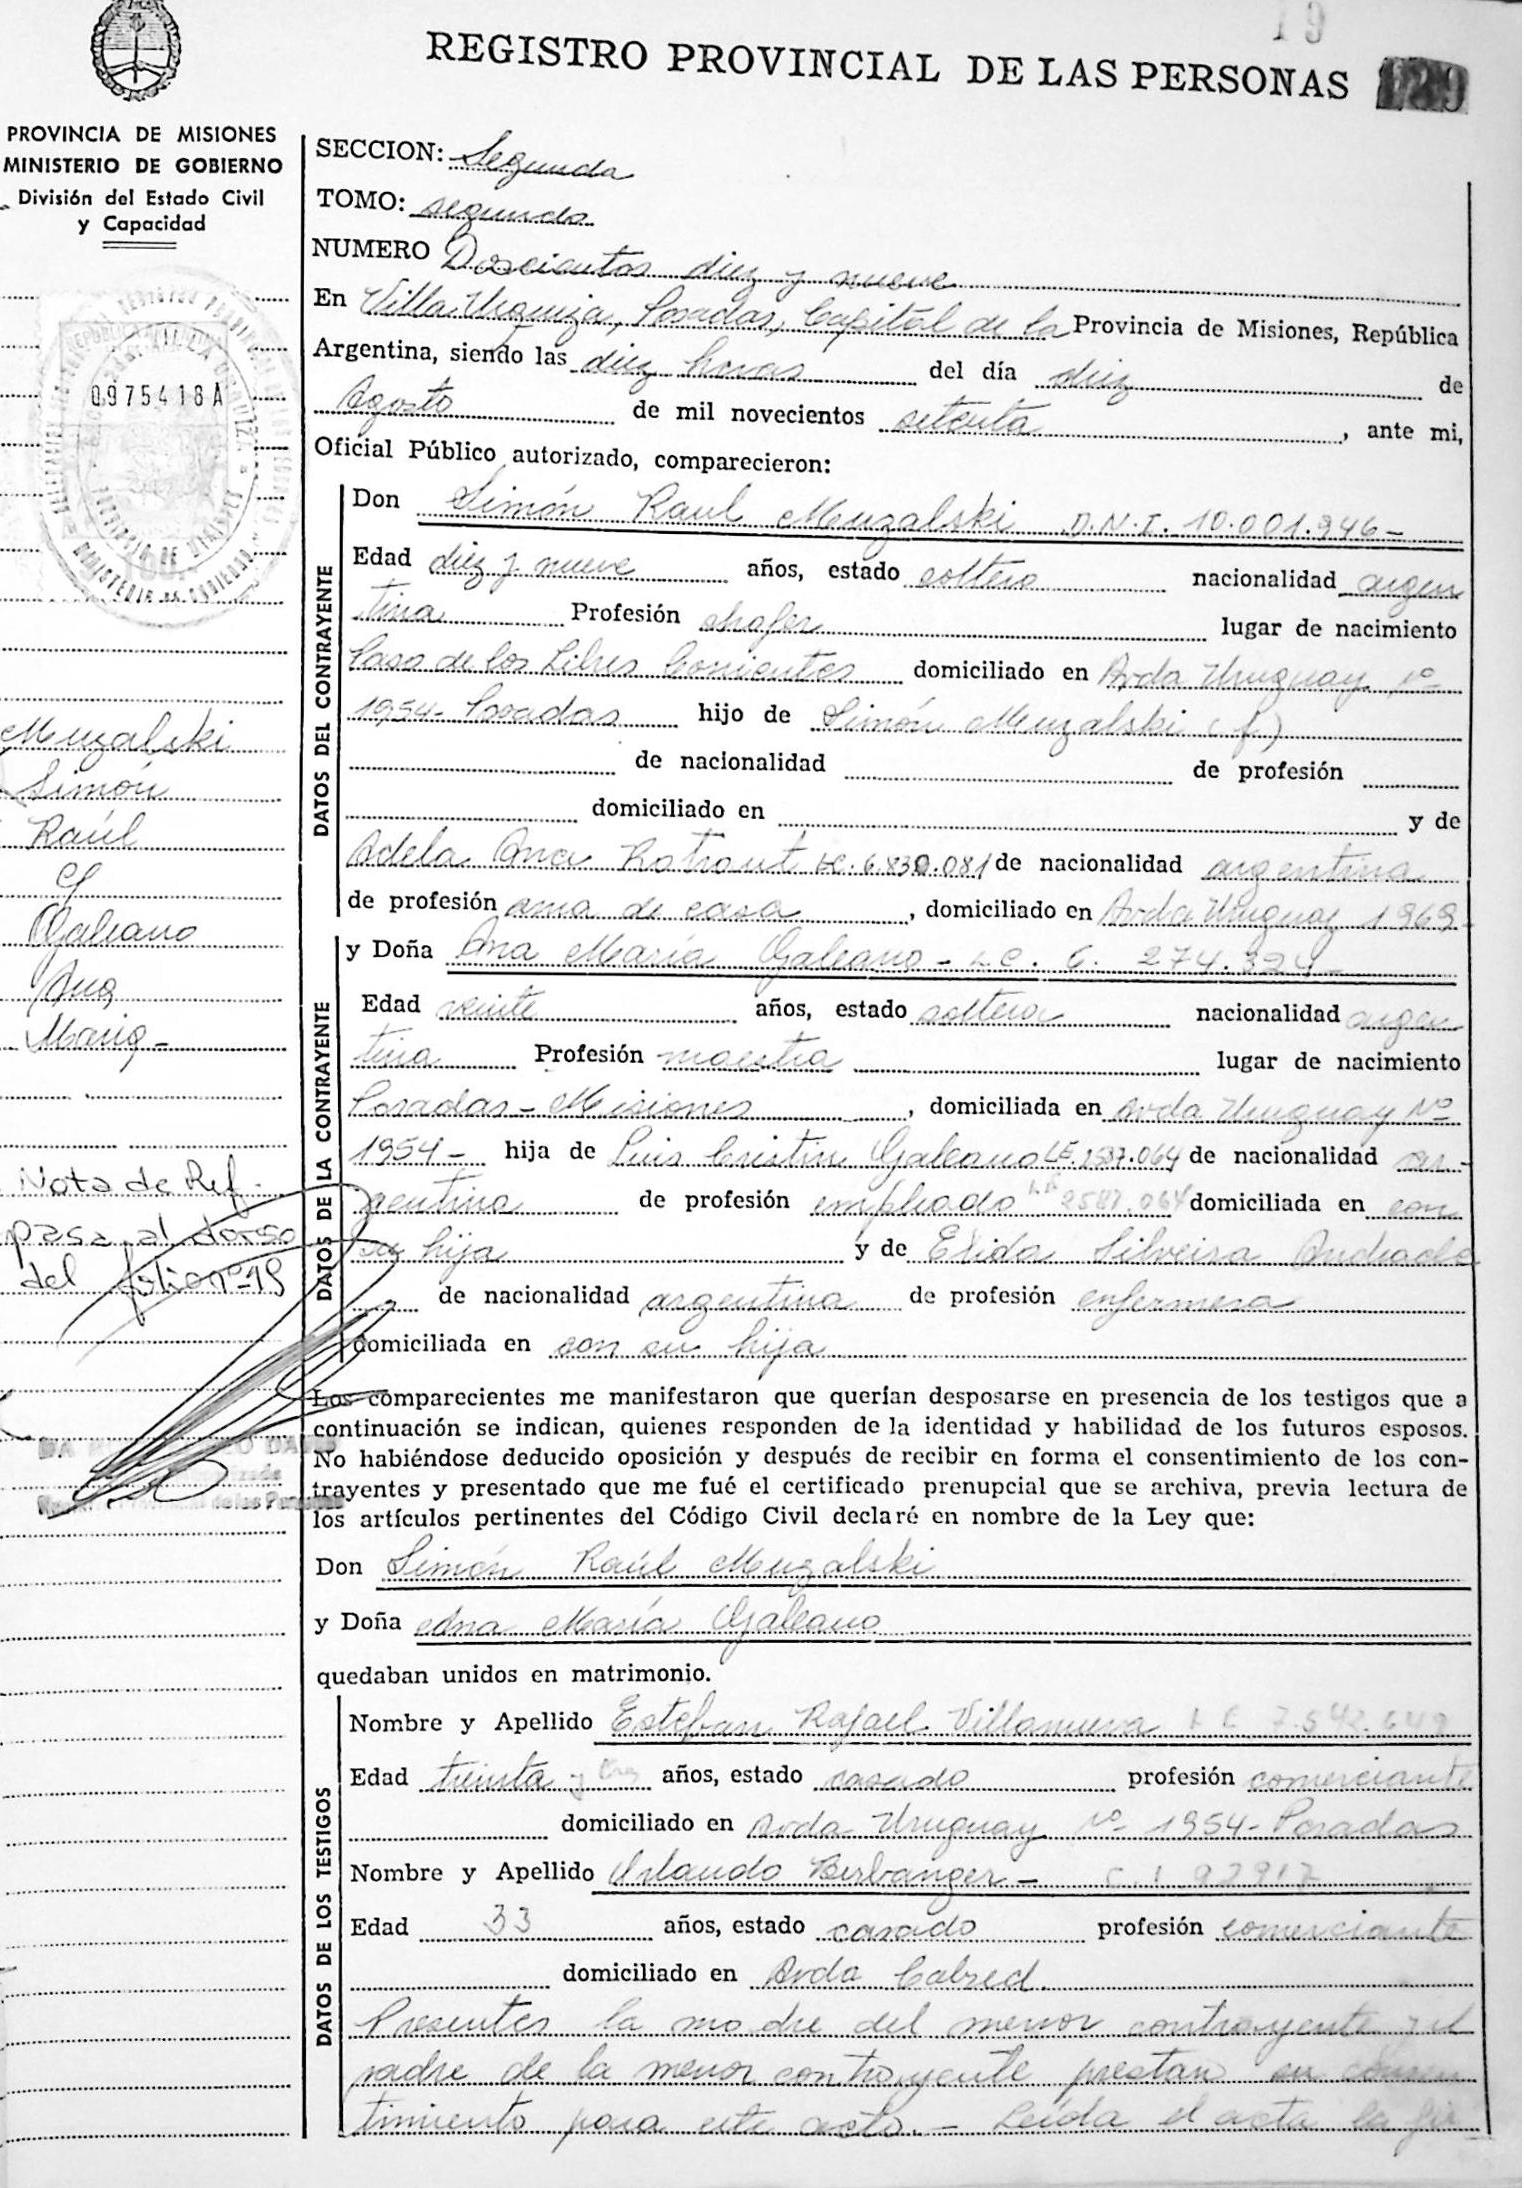 19
REGISTRO PROVINCIAL DE LAS PERSONAS
PROVINCIA DE MISIONES
MINISTERIO DE GOBIERNO
División del Estado Civil
y Capacidad
0975418A
Muzalski
Simón
Raúl
y
Galeano
Ana
María -
Nota de Ref.
pasa al dorso
del folio nº 19
SECCION: Segunda
TOMO: segundo
NUMERO Doscientos diez y nueve
En Villa Urquiza, Posadas, Capital de la Provincia de Misiones, República
Argentina, siendo las diez horas del día diez de
Agosto de mil novecientos setenta, ante mi,
Oficial Público autorizado, comparecieron:
DATOS DEL CONTRAYENTE
Don Simón Raul Muzalski D.N.I. 10.001.946 -
Edad diez y nueve años, estado soltero nacionalidad argen
tina Profesión chofer lugar de nacimiento
Paso de los Libres Corrientes domiciliado en Avda Uruguay Nº
1954 - Posadas hijo de Simón Muzalski (f)
de nacionalidad de profesión
domiciliado en y de
Adela Ana LC. 6.830.081 de nacionalidad argentina
de profesión ama de casa, domiciliado en Avda Uruguay 1969 -
DATOS DE LA CONTRAYENTE
y Doña Ana María Galeano - LC. 6. 274.324 -
Edad veinte años, estado soltera nacionalidad argen
tina Profesión maestra lugar de nacimiento
Posadas - Misiones, domiciliada en Avda Uruguay Nº
1954 - hija de Luis Cristin Galeano LE. 2587.064 de nacionalidad ar -
gentina de profesión empleado LE 2587.064 domiciliada en con
su hija y de Elida Silveira Andrade
de nacionalidad argentina de profesión enfermera
domiciliada en con su hija
Los comparecientes me manifestaron que querían desposarse en presencia de los testigos que a
continuación se indican, quienes responden de la identidad y habilidad de los futuros esposos.
No habiéndose deducido oposición y después de recibir en forma el consentimiento de los con-
trayentes y presentado que me fué el certificado prenupcial que se archiva, previa lectura de
los artículos pertinentes del Código Civil declaré en nombre de la Ley que:
Don Simón Raúl Muzalski
y Doña Ana María Galeano
quedaban unidos en matrimonio.
DATOS DE LOS TESTIGOS
Nombre y Apellido Esteban Rafael Villanueva L E 7.542.649
Edad treinta y tres años, estado casado profesión comerciante
domiciliado en Avda Uruguay Nº 1954 - Posadas
Nombre y Apellido Orlando Berbanger - C. I 92917
Edad 33 años, estado casado profesión comerciante
domiciliado en Avda Cabred.
Presentes la madre del menor contrayente y el
padre de la menor contrayente prestan su consen
timiento para este acto. - Leída el acta la fir